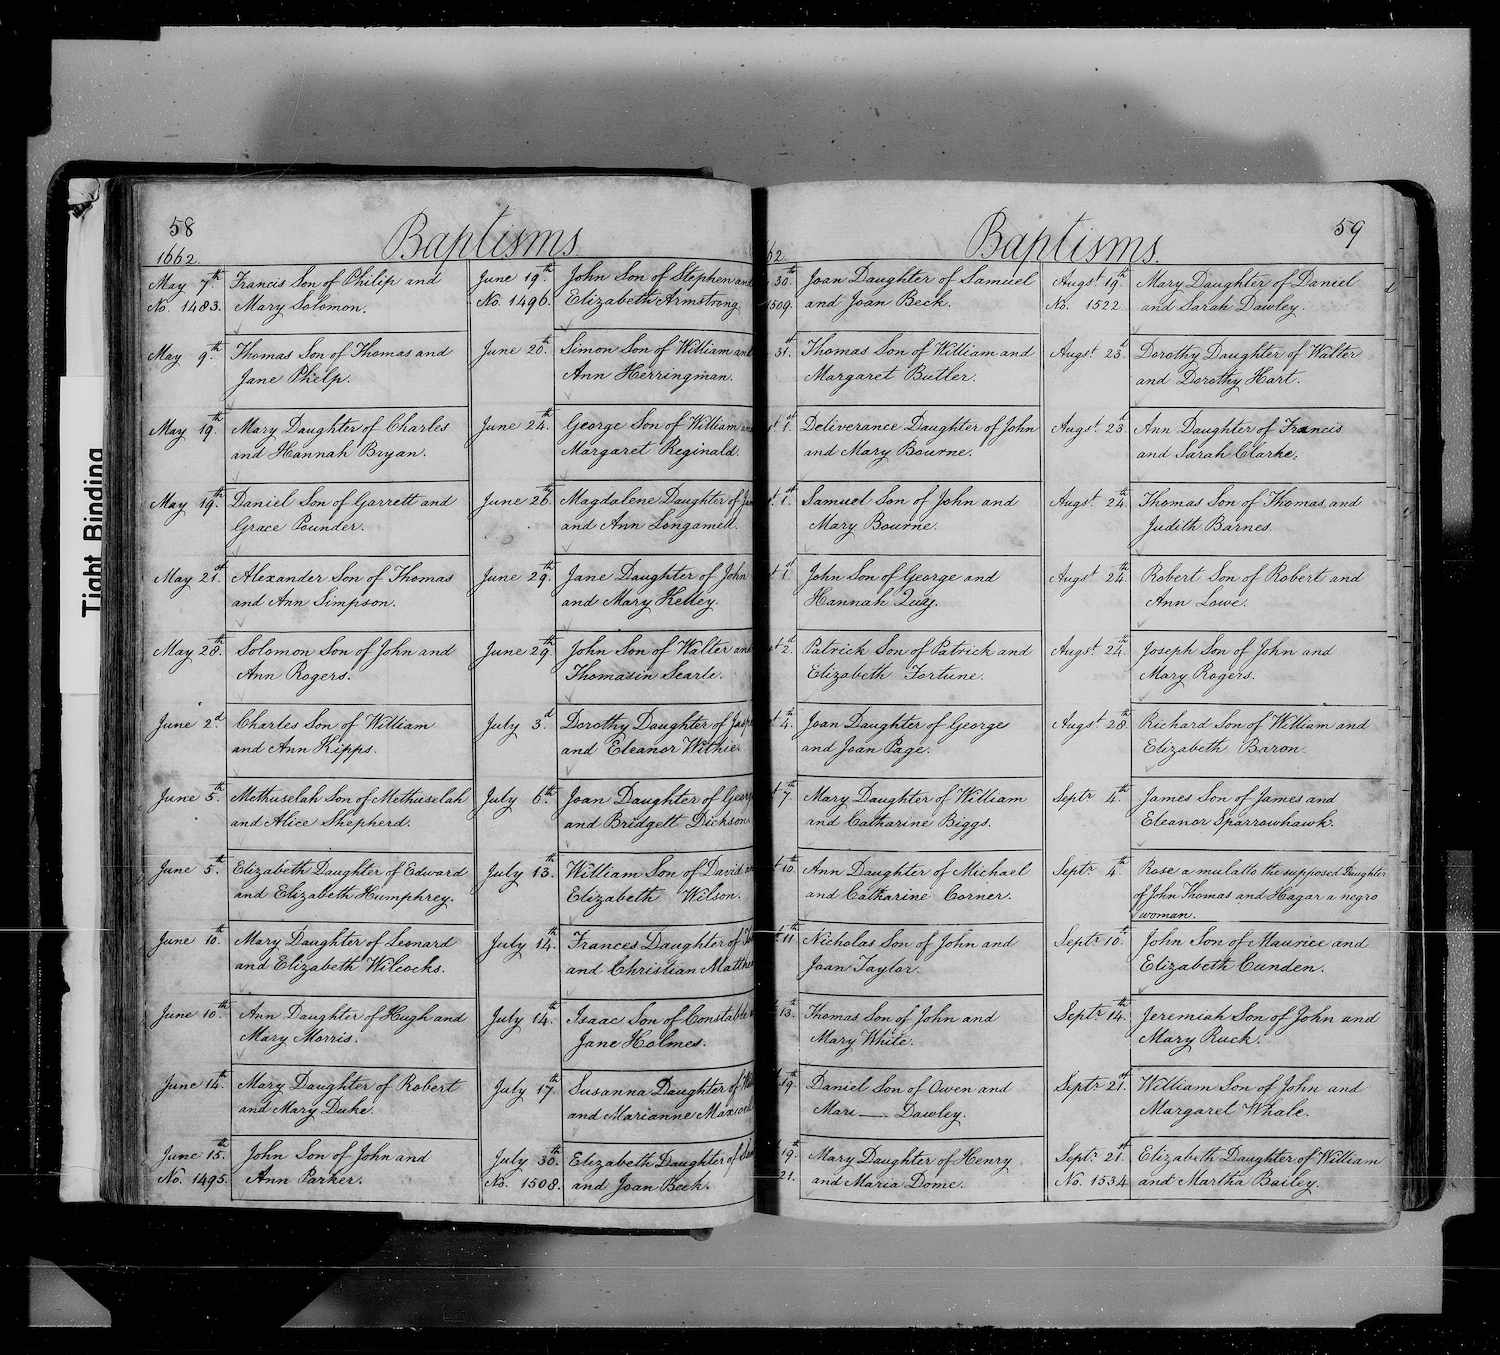 Tight Binding
58
Baptisms.
1662.
May 7th. Francis Son of Philip and
No. 1483. Mary Solomon.
May 9th. Thomas Son of Thomas and
Jane Phelp.
May 19th. Mary Daughter of Charles
and Hannah Bryan.
May 19th. Daniel Son of Garrett and
Grace Pounder.
May 21st. Alexander Son of Thomas
and Ann Simpson.
May 28th. Solomon Son of John and
Ann Rogers.
June 2d Charles Son of William
and Ann Kipps.
June 5th. Methuselah Son of Methuselah
and Alice Shepherd.
June 5th. Elizabeth Daughter of Edward
and Elizabeth Humphrey.
June 10th. Mary Daughter of Leonard
and Elizabeth Wilcocks.
June 10th. Ann Daughter of Hugh and
Mary Morris.
June 14th. Mary Daughter of Robert
and Mary Duke.
June 15th. John Son of John and
No. 1495. Ann Parker.
June 19th. John Son of Stephen and
No. 1496. Elizabeth Armstrong
June 20th. Simon Son of William and
Ann Herringman.
June 24th. George Son of William
Margaret Reginald.
June 26th. Magdalene Daughter of
and Ann Longamell.
June 29th. Jane Daughter of John
and Mary Kelley.
June 29th. John Son of Walter and
Thomasin Searle.
July 3d. Dorothy Daughter of
and Eleanor Withie
July 6th. Joan Daughter of
and Bridgett Dickson
July 13th. William Son of David
Elizabeth Wilson.
July 14th. Frances Daughter of
and Christian
July 14th. Isaac Son of Constable
Jane Holmes.
July 17th. Susanna Daughter of
and Marianne
July 30th. Elizabeth Daughter of
No. 1508. and Joan Beek.
59
Baptisms.
62.
30th. Joan Daughter of Samuel
1509. and Joan Beck.
31st. Thomas Son of William and
Margaret Butler.
1st. Deliverance Daughter of John
and Mary Bourne.
1st. Samuel Son of John and
Mary Bourne.
1st. John Son of George and
Hannah Quy.
2d. Patrick Son of Patrick and
Elizabeth Fortune.
4th. Joan Daughter of George
and Joan Page.
7th. Mary Daughter of William
and Catharine Biggs.
10th. Ann Daughter of Michael
and Catharine Corner.
11th. Nicholas Son of John and
Joan Taylor.
13th. Thomas Son of John and
Mary White.
19th. Daniel Son of Owen and
Mari — Dawley.
19th. Mary Daughter of Henry
21. and Maria Dome.
Augst. 19th. Mary Daughter of Daniel
No. 1522 and Sarah Dawley.
Augst. 23d. Dorothy Daughter of Walter
and Dorothy Hart.
Augst. 23d. Ann Daughter of Francis
and Sarah Clarke.
Augst. 24th. Thomas Son of Thomas and
Judith Barnes.
Augst. 24th. Robert Son of Robert and
Ann Lowe.
Augst. 24th. Joseph Son of John and
Mary Rogers.
Augst. 28th. Richard Son of William and
Elizabeth Baron.
Septr. 4th. James Son of James and
Eleanor Sparrowhawk.
Septr. 4th. Rose a mulatto the supposed Daughter
of John Thomas and Hagar a negro
woman.
Septr. 10th. John Son of Maurice and
Elizabeth Cunden.
Septr. 14th. Jeremiah Son of John and
Mary Ruck.
Septr. 21st. William Son of John and
Margaret Whale.
Septr. 21st. Elizabeth Daughter of William
No. 1534 and Martha Bailey.